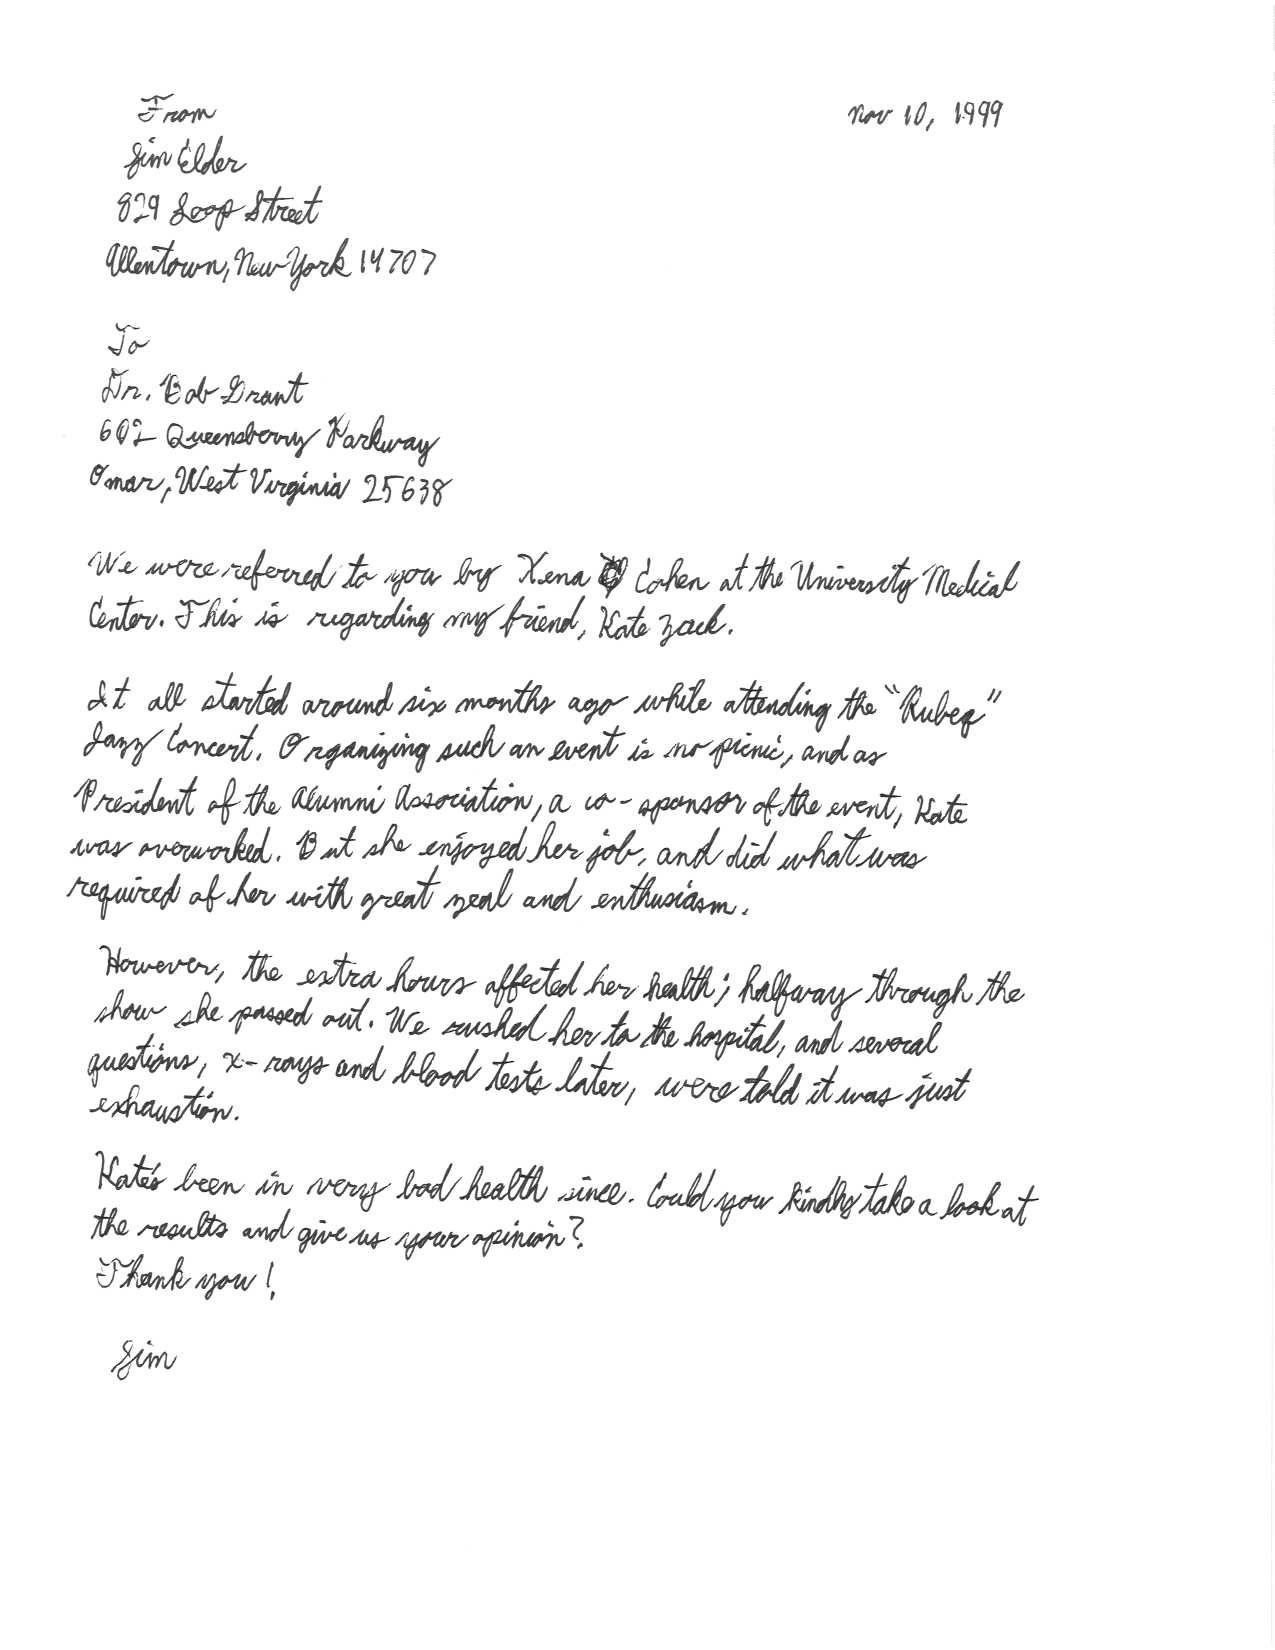 From
Nov 10, 1999
Jim Elder
829 Loop Street
Allentown, New York 14707
To
Dr. Bob Grant
602 Queensberry Parkway
Omar, West Virginia 25638
We were referred to you by Xena Cohen at the University Medical
Center. This is regarding my friend, Kate Zack.
It all started around six months ago while attending the "Rubeq"
Jazz Concert. Organizing such an event is no picnic, and as
President of the Alumni Association, a co-sponsor of the event, Kate
was overworked. But she enjoyed her job, and did what was
required of her with great zeal and enthusiasm.
However, the extra hours affected her health; halfway through the
show she passed out. We rushed her to the hospital, and several
questions, x-rays and blood tests later, were told it was just
exhaustion.
Kate's been in very bad health since. Could you kindly take a look at
the results and give us your opinion?
Thank you!
Jim